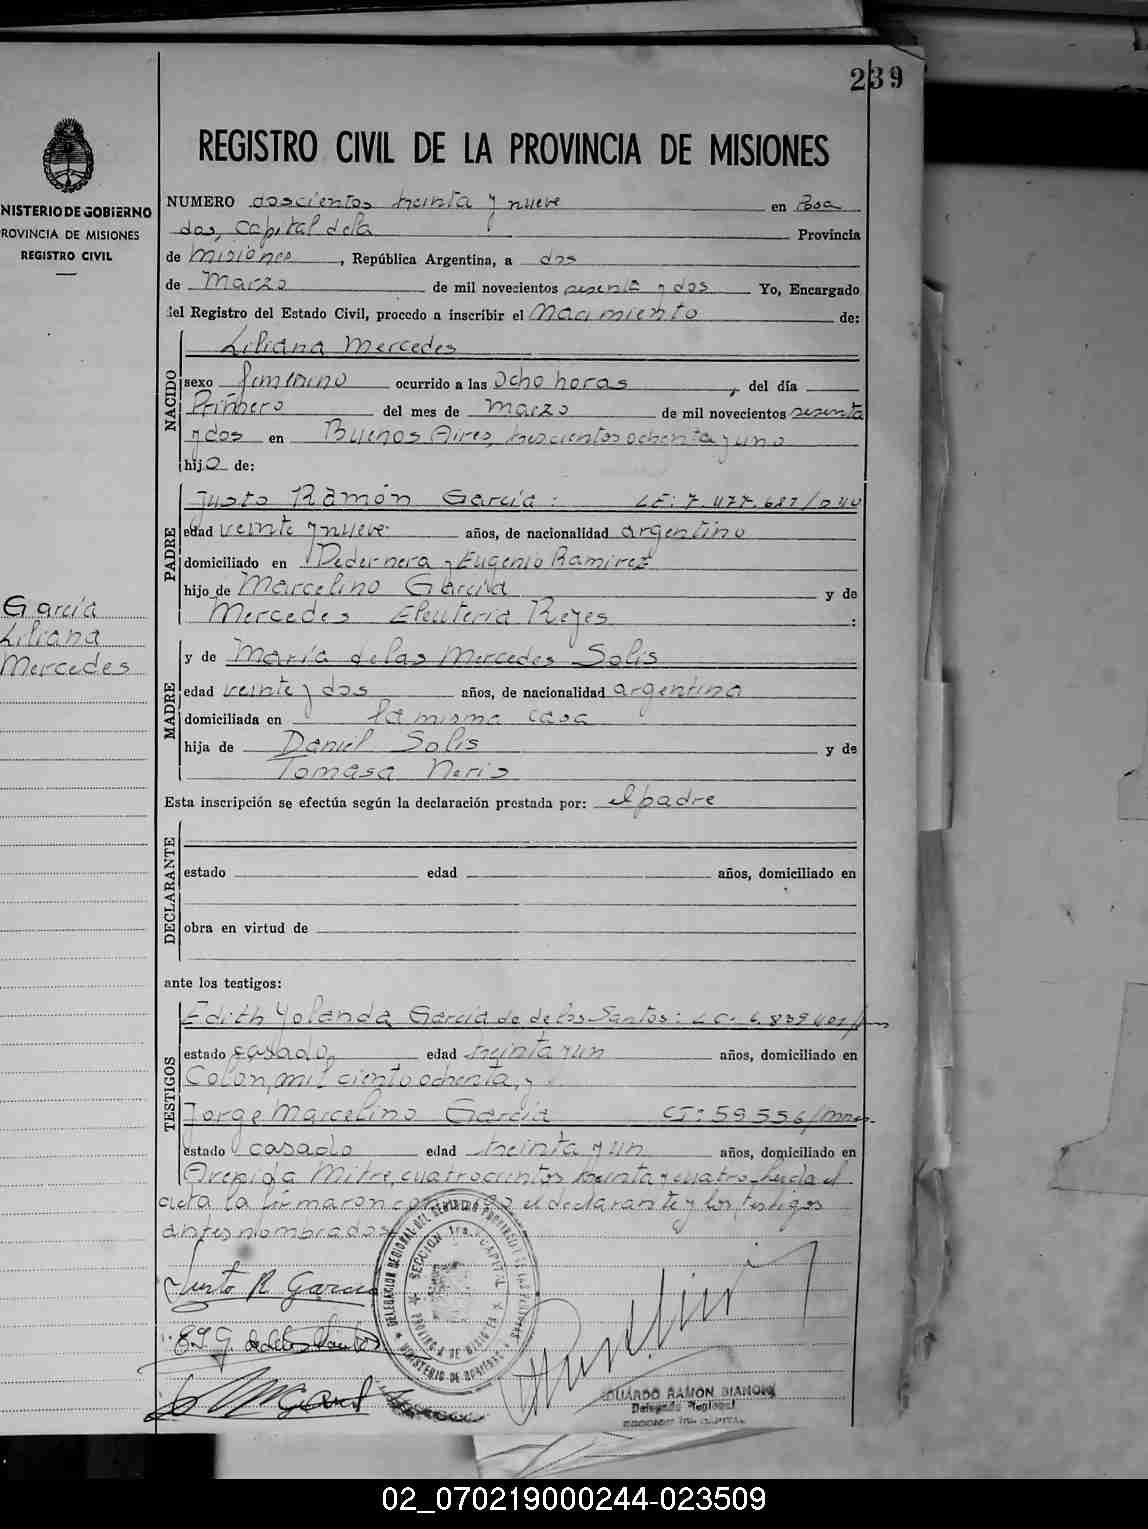 239
REGISTRO CIVIL DE LA PROVINCIA DE MISIONES
NISTERIO DE GOBIERNO
ROVINCIA DE MISIONES
REGISTRO CIVIL
NUMERO doscientos treinta y nueve en Posa
das, Capital de la Provincia
de Misiones, República Argentina, a dos
de Marzo de mil novecientos sesenta y dos Yo, Encargado
del Registro del Estado Civil, procedo a inscribir el Nacimiento de:
NACIDO
Liliana Mercedes
sexo femenino ocurrido a las Ocho horas, del día
Primero del mes de Marzo de mil novecientos sesenta
y dos en Buenos Aires, trescientos ochenta y uno
hijo de:
PADRE
Justo Ramón García: LE: 7.477.687/D40
edad veinte y nueve años, de nacionalidad argentino
domiciliado en Pedernera y Eugenio Ramirez
hijo de Marcelino García y de
Mercedes Eleuteria Reyes :
García
Liliana
Mercedes
MADRE
y de María de las Mercedes Solis
edad veinte y dos años, de nacionalidad argentina
domiciliada en la misma casa
hija de Daniel Solis y de
Tomasa Neris
Esta inscripción se efectúa según la declaración prestada por: el padre
DECLARANTE
estado edad años, domiciliado en
obra en virtud de
ante los testigos:
TESTIGOS
Edith Yolanda García de de los Santos: LC. 6.839.401/
estado casado, edad treinta y un años, domiciliado en
Colon, mil ciento ochenta, y
Jorge Marcelino García CI: 59556/
estado casado edad treinta y un años, domiciliado en
Avenida Mitre, cuatrocientos treinta y cuatro. Leida el
acta la firmaron el declarante y los testigos
antes nombrados
Justo R García
E.Y.G. de de los Santos
DELEGACION REGIONAL DEL REGISTRO PROVINCIAL DE LAS PERSONAS
SECCION 1ra. CAPITAL
PROVINCIA DE MISIONES
MINISTERIO DE GOBIERNO
EDUARDO RAMÓN BIANCHI
Delegado Regional
SECCION 1ra. CAPITAL
02_070219000244-023509